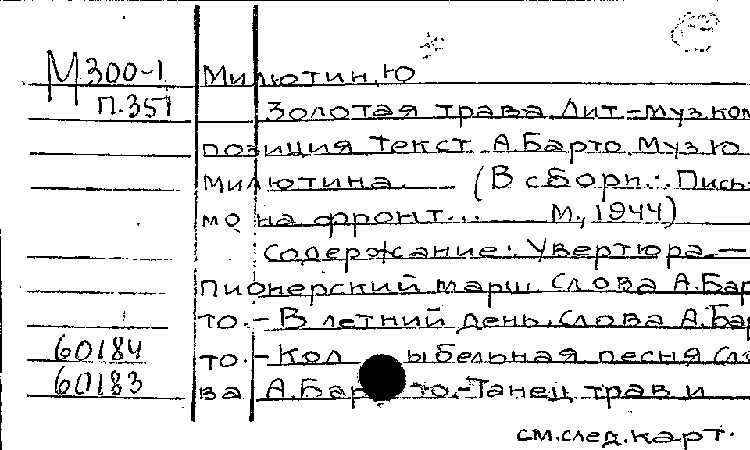 М300-1 Милютин, Ю
п.351 Золотая трава. Лит-муз.ком
позиция Текст А.Барто. Муз.Ю
Милютина. (В сборн.: Пись-
мо на фронт... М., 1944)
Содержание: Увертюра. —
Пионерский марш. Слова А.Бар
то. - В летний день. Слова А.Бар
60184 то. - Колыбельная песня Сло
60183 ва А.Барто. - Танец трав и
см.след.карт.